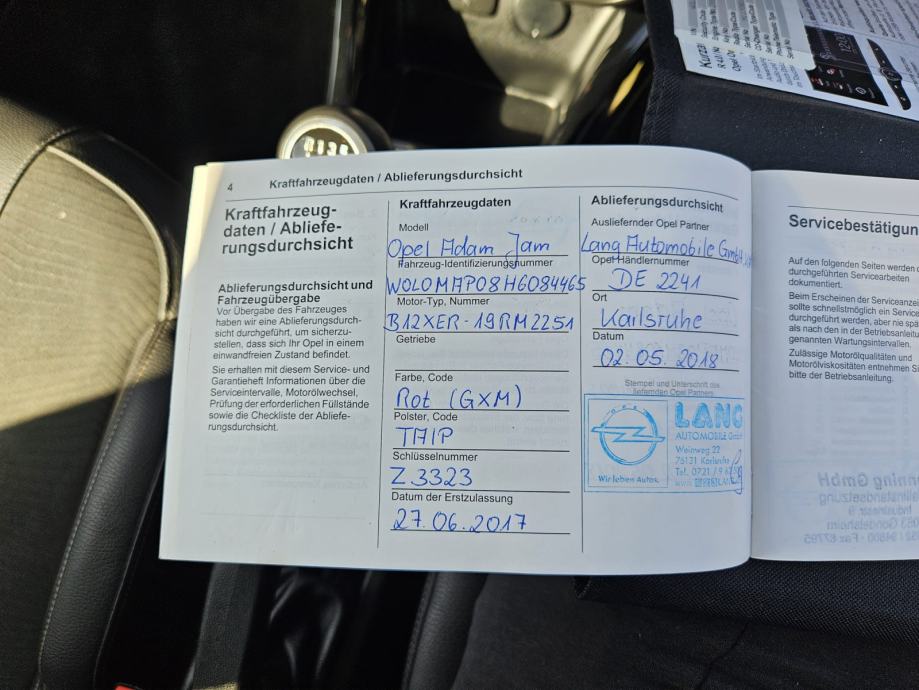 4 Kraftfahrzeugdaten / Ablieferungsdurchsicht
Kraftfahrzeug-
daten / Abliefe-
rungsdurchsicht
Ablieferungsdurchsicht und
Fahrzeugübergabe
Vor Übergabe des Fahrzeuges
haben wir eine Ablieferungsdurch-
sicht durchgeführt, um sicherzu-
stellen, dass sich Ihr Opel in einem
einwandfreien Zustand befindet.
Sie erhalten mit diesem Service- und
Garantieheft Informationen über die
Serviceintervalle, Motorölwechsel,
Prüfung der erforderlichen Füllstände
sowie die Checkliste der Abliefe-
rungsdurchsicht.
Kraftfahrzeugdaten
Modell
Opel Adam Jam
Fahrzeug-Identifizierungsnummer
WOLOMAP08H6084465
Motor-Typ, Nummer
B12XER-19RM2251
Getriebe
Farbe, Code
Rot (GXM)
Polster, Code
TAIP
Schlüsselnummer
Z3323
Datum der Erstzulassung
27.06.2017
Ablieferungsdurchsicht
Ausliefernder Opel Partner
Lang Automobile GmbH
Opel Händlernummer
DE 2241
Ort
Karlsruhe
Datum
02.05.2018
Stempel und Unterschrift des
liefernden Opel Partners
OPEL
Wir leben Autos.
LANG
AUTOMOBILE GmbH
Weinweg 22
76131 Karlsruhe
Tel. 0721 / 9
Servicebestätigun
Auf den folgenden Seiten werden d
durchgeführten Servicearbeiten
dokumentiert.
Beim Erscheinen der Serviceanze
sollte schnellstmöglich ein Service
durchgeführt werden, aber nie spä
als nach den in der Betriebsanleitu
genannten Wartungsintervallen.
Zulässige Motorölqualitäten und
Motorölviskositäten entnehmen Si
bitte der Betriebsanleitung.
Kurza